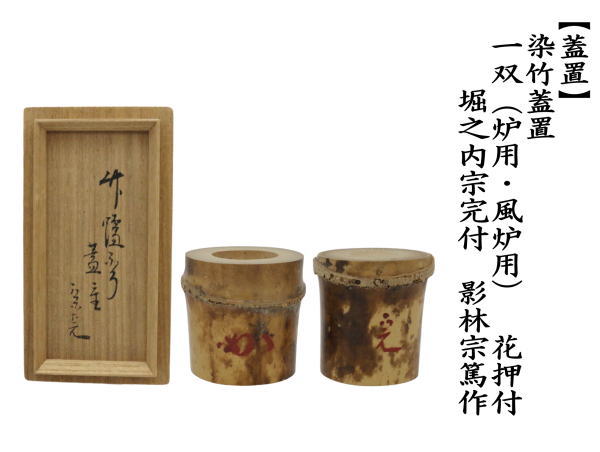 【蓋置】
染竹蓋置
一双(炉用・風炉用) 花押付
堀之内宗完付 影林宗篤作
竹
蓋置
宗完